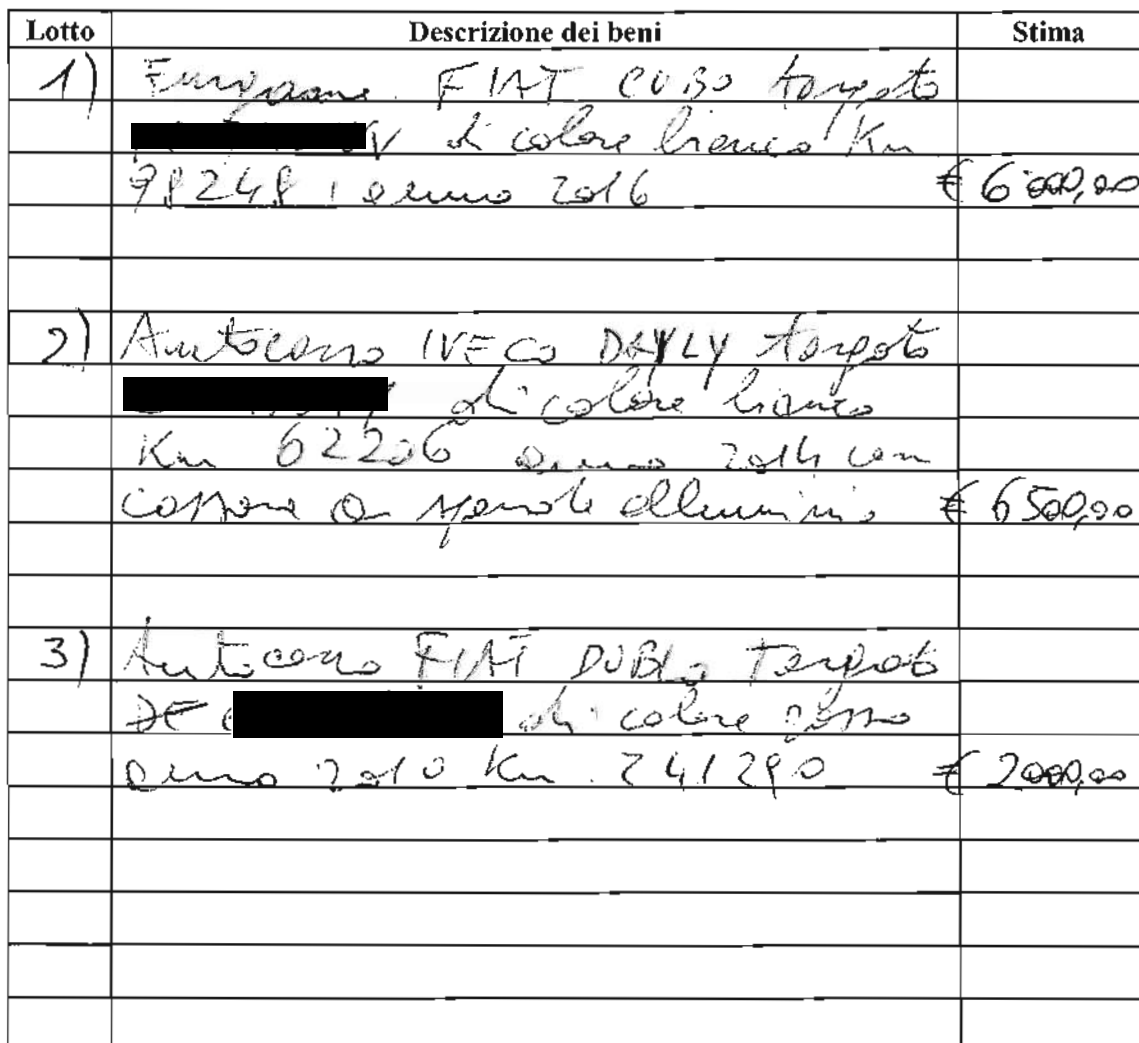 Lotto Descrizione dei beni Stima
1) Furgone FIAT CUBO targato
di colore bianco Km
98248, anno 2016 € 6000,00
2) Autocarro IVECO DAYLY targato
di colore bianco
Km 62206 anno 2014 con
cassone a sponde alluminio € 6500,00
3) Autocarro FIAT DUBLO Targato
di colore rosso
anno 2010 Km. 241290 € 2000,00